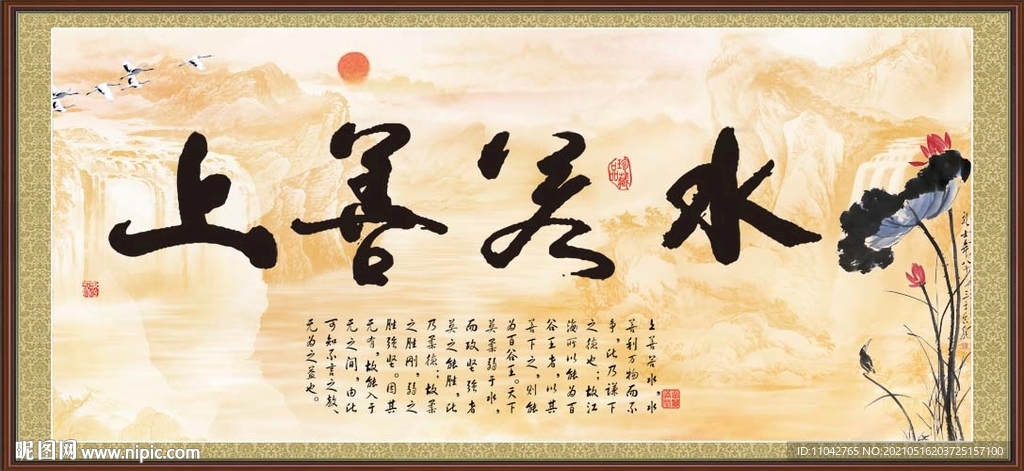 上善若水
上善若水,水
善利万物而不
争,此乃谦下
之德也;故江
海所以能为百
谷王者,以其
善下之,则能
为百谷王。天下
莫柔弱于水,
而攻坚强者
莫之能胜,此
乃柔德;故柔
之胜刚,弱之
胜强坚。因其
无有,故能入于
无之间,由此
可知不言之教
无为之益也。
昵图网 www.nipic.com
ID:11042765 NO:20210516203725157100